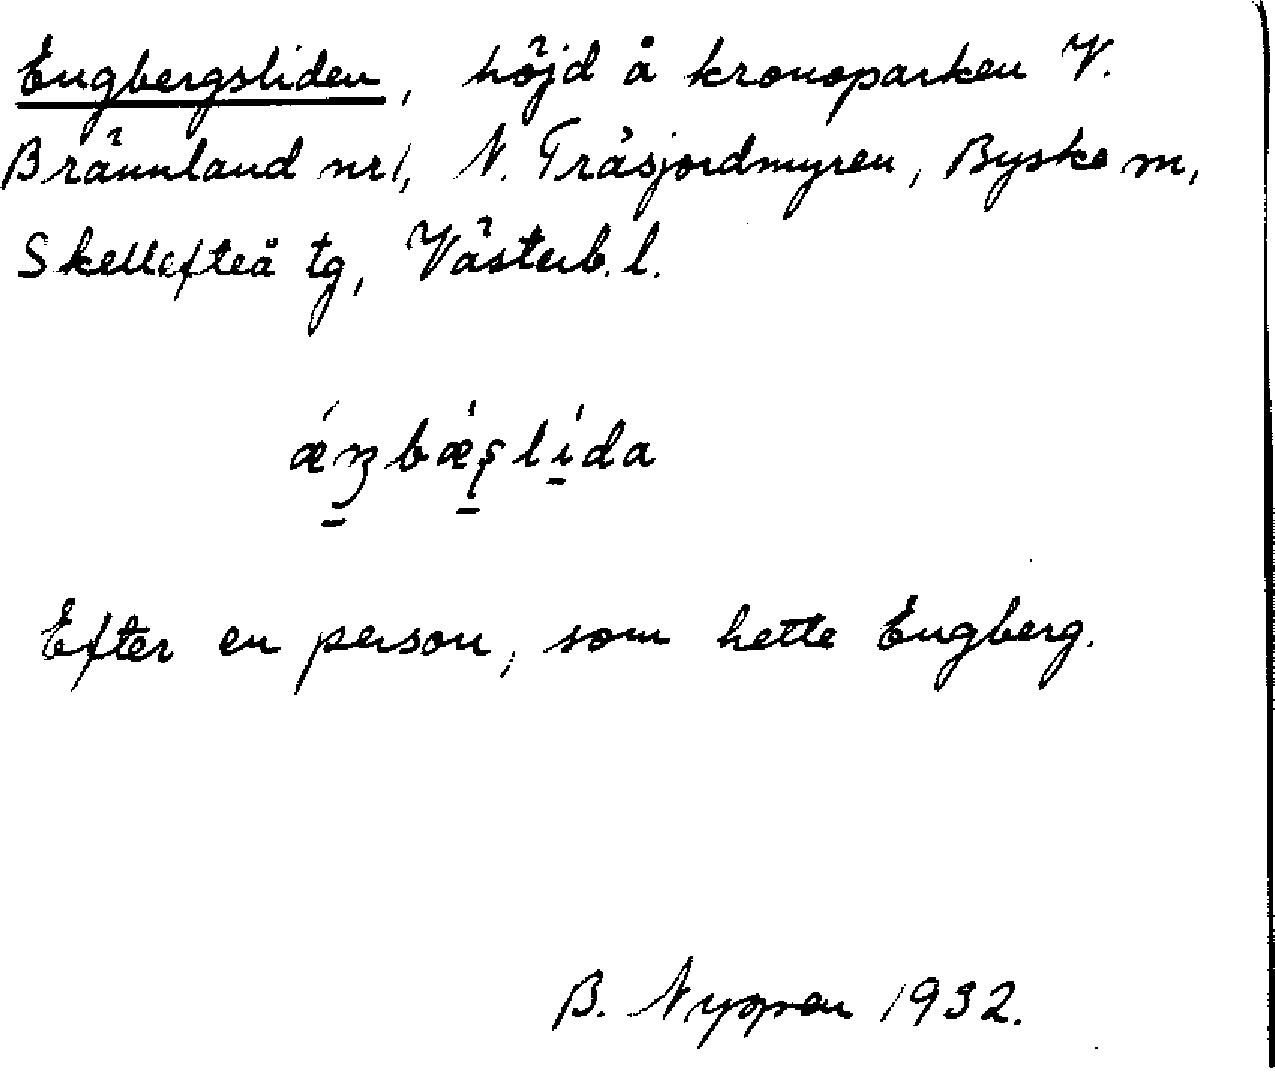 Engbergsliden, höjd å kronoparken V.
Brännland nr 1, N. Träsjordmyren, Byske m,
Skellefteå tg, Västerb. l.
ǽŋbǽʂlída
Efter en person, som hette Engberg.
B. 1932.